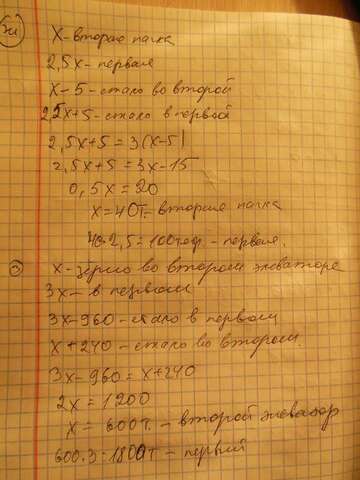 х - вторая пачка
2,5х - первая
х - 5 - стало во второй
2,5х + 5 - стало в первой
2,5х + 5 = 3(х - 5)
2,5х + 5 = 3х - 15
0,5х = 20
х = 40т. - вторая пачка
40 · 2,5 = 100тетр. - первая.
х - зерно во втором элеваторе
3х - в первом
3х - 960 - стало в первом
х + 240 - стало во втором.
3х - 960 = х + 240
2х = 1200
х = 600т. - второй элеватор
600 · 3 = 1800т - первый